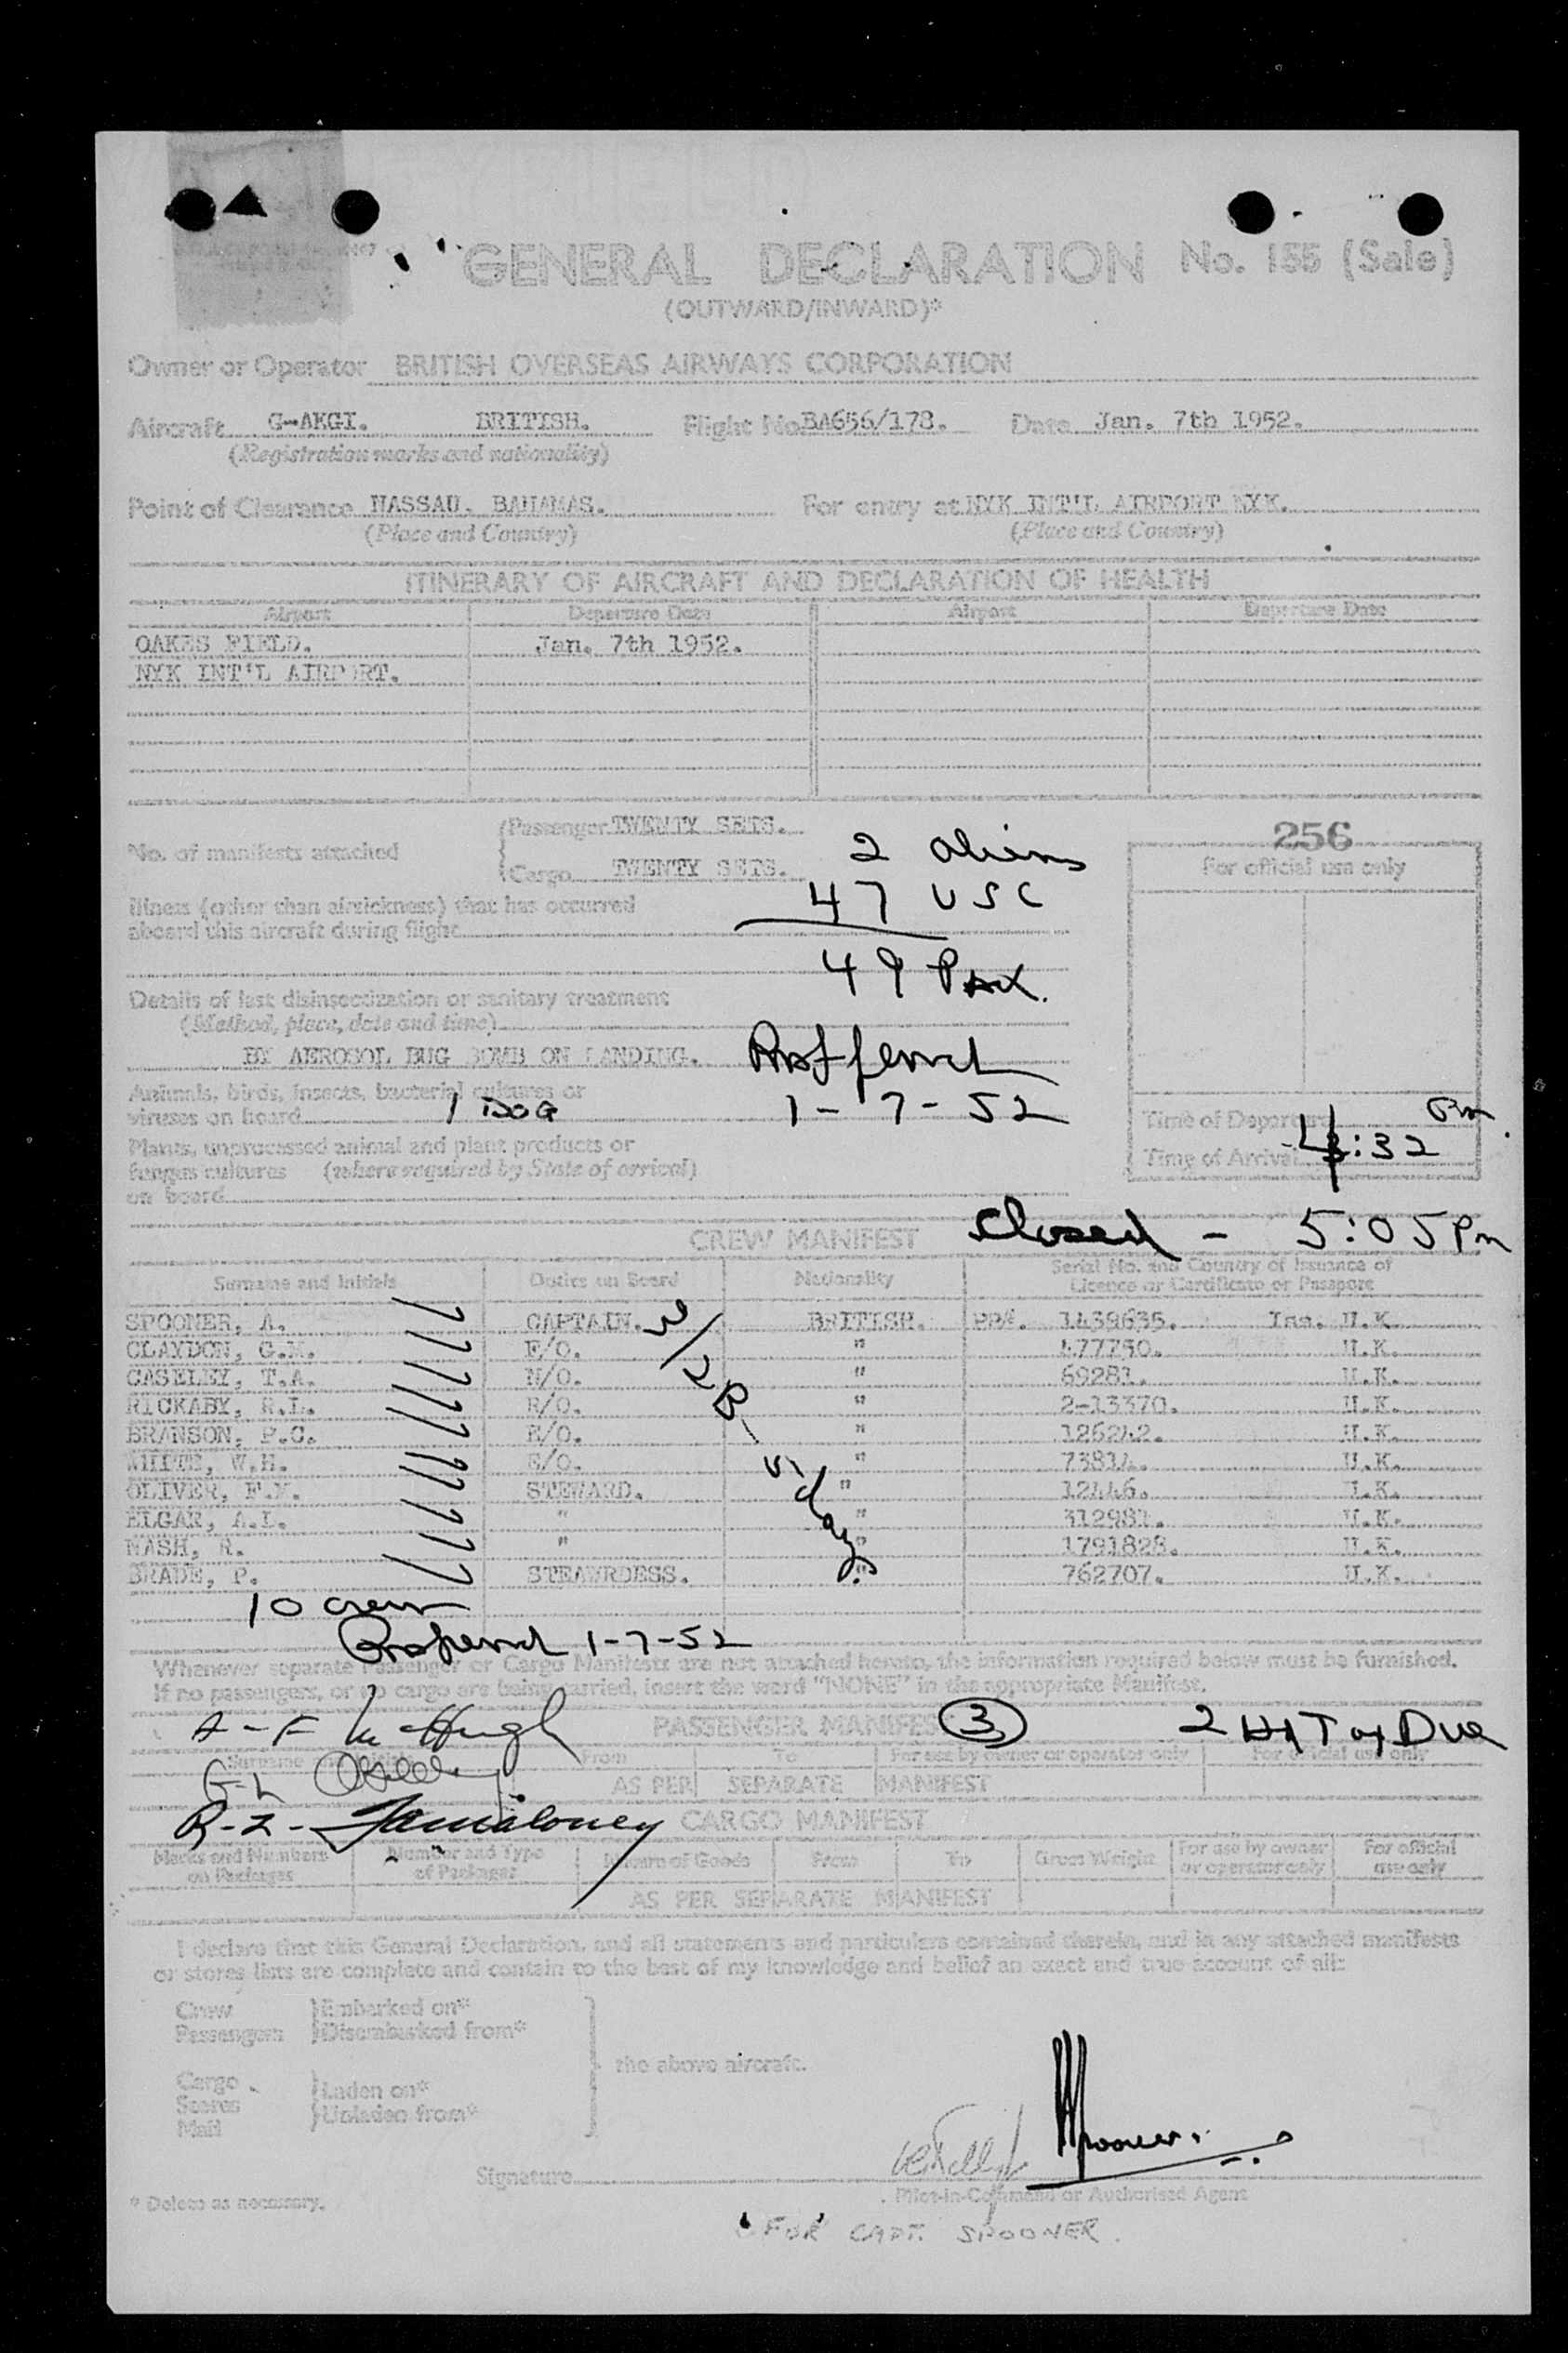 GENERAL DECLARATION No. 155 (Sale)
(OUTWARD/INWARD)*
Owner or Operator BRITISH OVERSEAS AIRWAYS CORPORATION
Aircraft G-AKGI. BRITISH. Flight No. BA656/178. Date Jan. 7th 1952.
(Registration marks and nationality)
Point of Clearance NASSAU. BAHAMAS. For entry at NYK INT'L AIRPORT NYK.
(Place and Country) (Place and Country)
ITINERARY OF AIRCRAFT AND DECLARATION OF HEALTH
Airport Departure Date Airport Departure Date
OAKES FIELD. Jan. 7th 1952.
NYK INT'L AIRPORT.
No. of manifests attached
Passenger TWENTY SETS.
Cargo TWENTY SETS.
2 aliens
47 USC
49 Pax.
256
For official use only
Illness (other than airsickness) that has occurred
aboard this aircraft during flight
Details of last disinsectization or sanitary treatment
(Method, place, date and time)
BY AEROSOL BUG BOMB ON LANDING.
1-7-52
Animals, birds, insects, bacterial cultures or
viruses on board 1 DOG
Plants, unprocessed animal and plant products or
fungus cultures (where required by State of arrival)
on board
Time of Departure
Time of Arrival 4:32 Pm
Closed - 5:05 Pm
CREW MANIFEST
Surname and Initials Duties on Board Nationality Serial No. and Country of Issuance of
Licence or Certificate or Passport
SPOONER, A. CAPTAIN. BRITISH. PP#. 1439635. Iss. U.K.
CLAYDON, G.M. F/O. " 477750. U.K.
CASELEY, T.A. N/O. " 69281. U.K.
RICKABY, R.L. R/O. " 2-13370. U.K.
BRANSON, P.C. E/O. " 126242. U.K.
WHITE, W.H. E/O. " 73814. U.K.
OLIVER, F.M. STEWARD. " 12446. U.K.
ELGAR, A.L. " " 312981. U.K.
NASH, R. " " 1791828. U.K.
BRADE, P. STEAWRDESS. " 762707. U.K.
days
10 crew
1-7-52
Whenever separate Passenger or Cargo Manifests are not attached hereto, the information required below must be furnished.
If no passengers, or no cargo are being carried, insert the word "NONE" in the appropriate Manifest.
A-F McHugh
PASSENGER MANIFEST
3
2 Hd Tax Due
Surname and Initials From To For use by owner or operator only For official use only
G-L
AS PER SEPARATE MANIFEST
R-Z-
CARGO MANIFEST
Marks and Numbers on Packages Number and Type of Packages Nature of Goods From To Gross Weight For use by owner or operator only For official use only
AS PER SEPARATE MANIFEST
I declare that this General Declaration, and all statements and particulars contained therein, and in any attached manifests
or stores lists are complete and contain to the best of my knowledge and belief an exact and true account of all:
Crew
Passengers
Embarked on*
Disembarked from*
the above aircraft.
Cargo
Stores
Mail
Laden on*
Unladen from*
Signature
Spooner.
* Delete as necessary.
Pilot-in-Command or Authorised Agent
FOR CAPT. SPOONER.